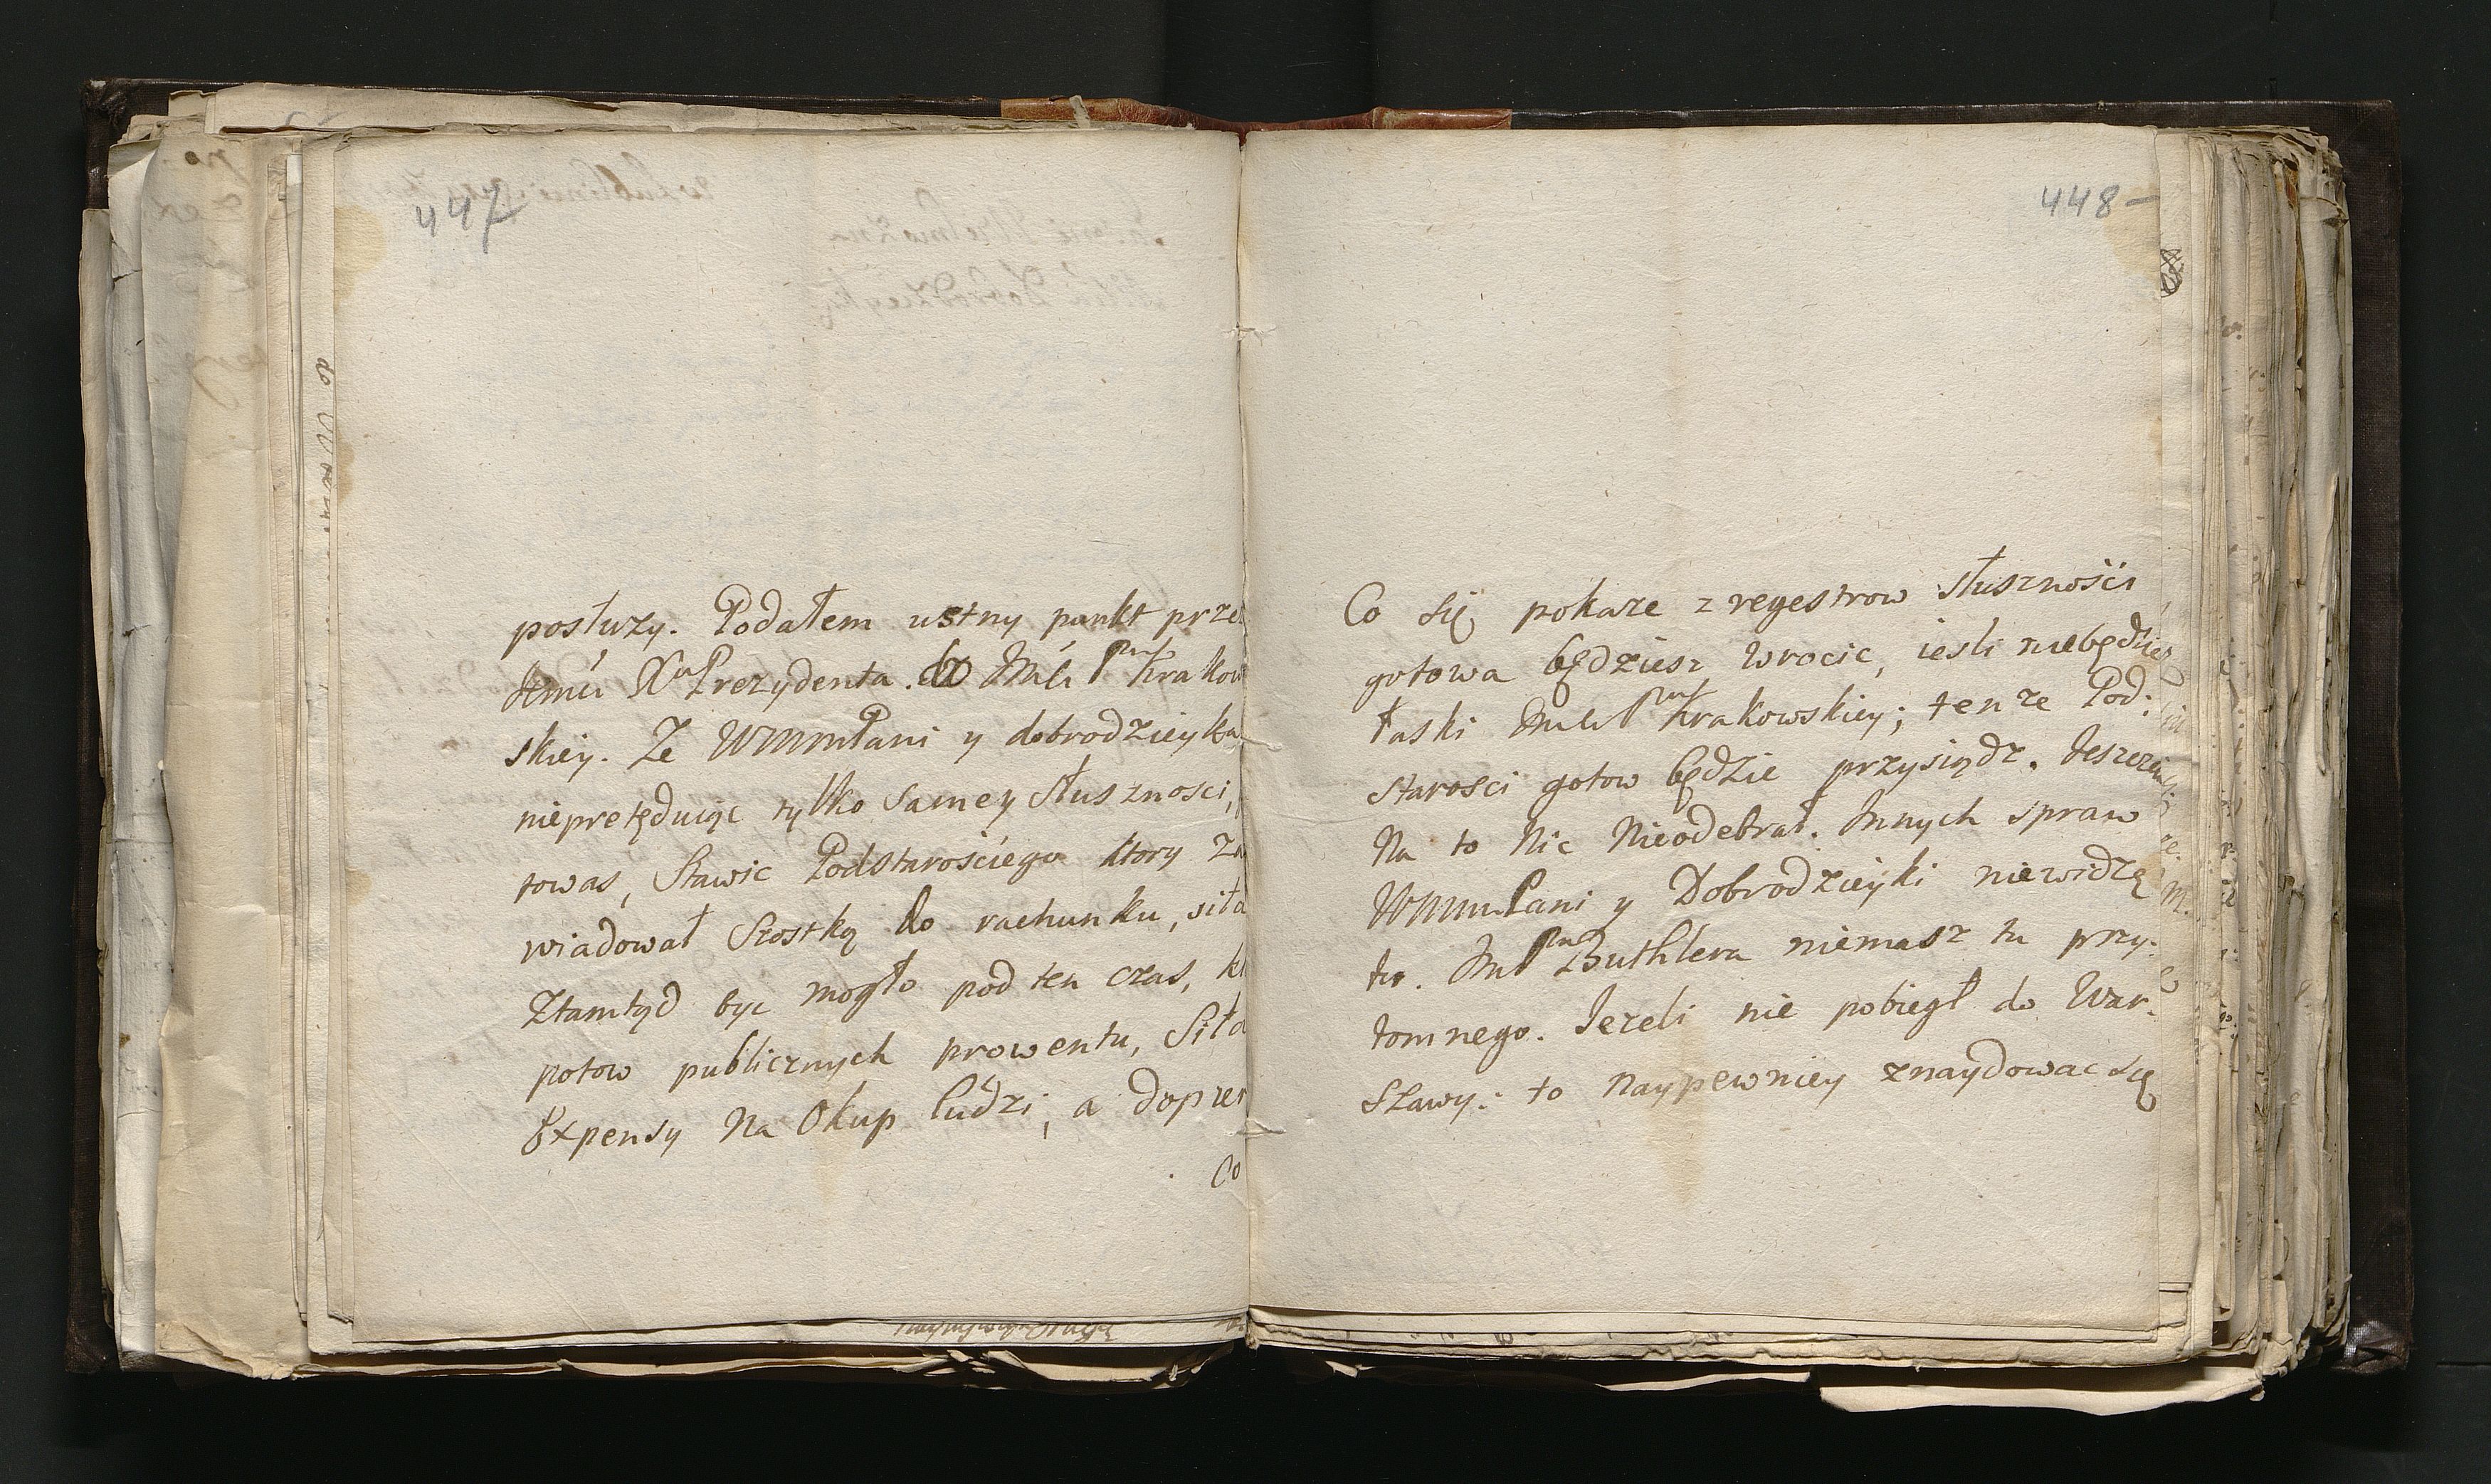 447
posłuży. Podałem ustny punkt prze
Jmu Xa Prezydenta. do JMci Pni Krakow
skiey. Ze WMmPani y dobrodzieyka
niepretęduiąc tylko samey słusznosci,
towas, stawic Podstarościego ktory za
wiadował Szostką do rachunku, siła
ztamtąd byc mogło pod ten czas, kł
potow publicznych prowentu, siła
Expensy na Okup ludzi, a dopier
Co
448
Co się pokaze z regestrow słuszności
gotowa będziesz wrocic, iesli niebędzie
łaski JMci Pni Krakowskiey; tenze Pod:
starosci gotow będzie przysiądz. Jeszcze
Na to Nic Nieodebrał. Innych spraw
WMmPani y Dobrodzieyki niewidzę
tu. JmP Buthlera niemasz tu przy:
tomnego. Jezeli nie pobiegł do War:
szawy: to naypewniey znaydowac się